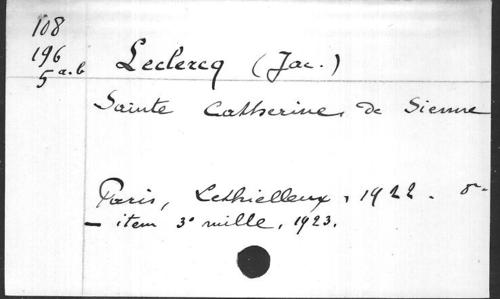 108
196
5 a.b
Leclercq (Jac.)
Sainte Catherine de Sienne
Paris, Lethielleux, 1922. 8º
— item 3º mille, 1923.